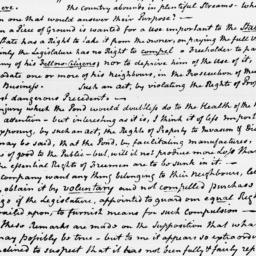 ore. the Country abounds in plentiful Streams. Wh
n one that would answer their Purpose? —
a Piece of Ground is wanted for a Use important to the State
State has a Right to take it from the owner, on paying the full V
nly the Legislature has no Right to compel a Freeholder to par
ny of his Fellow-Citizens nor to deprive him of the Use of it,
odate one or more of his Neighbours, in the Prosecution of
Business. Such an act, by violating the Rights of Prop
ost dangerous Precedent —
injury which the Pond would doubtless do to the Health of the
attention — but interesting as it is, I think it of less import
xposing, by such an act, the Rights of Property to Invasion &
may be said, that the Pond, by facilitating manufactures
e of good to the Public — but, will it not produce more Loss than
the essential Rights of Freemen are to be sunk in it. —
Company want any thing belonging to their Neighbours, let
obtain it by voluntary and not compelled purchase
go of the Legislature, appointed to guard our equal Right
vailed upon, to furnish means for such Compulsion —
These Remarks are made on the Supposition that what
may possibly be true — but to me it appears so extraord
clined to suspect that it has not been fully & fairly rep